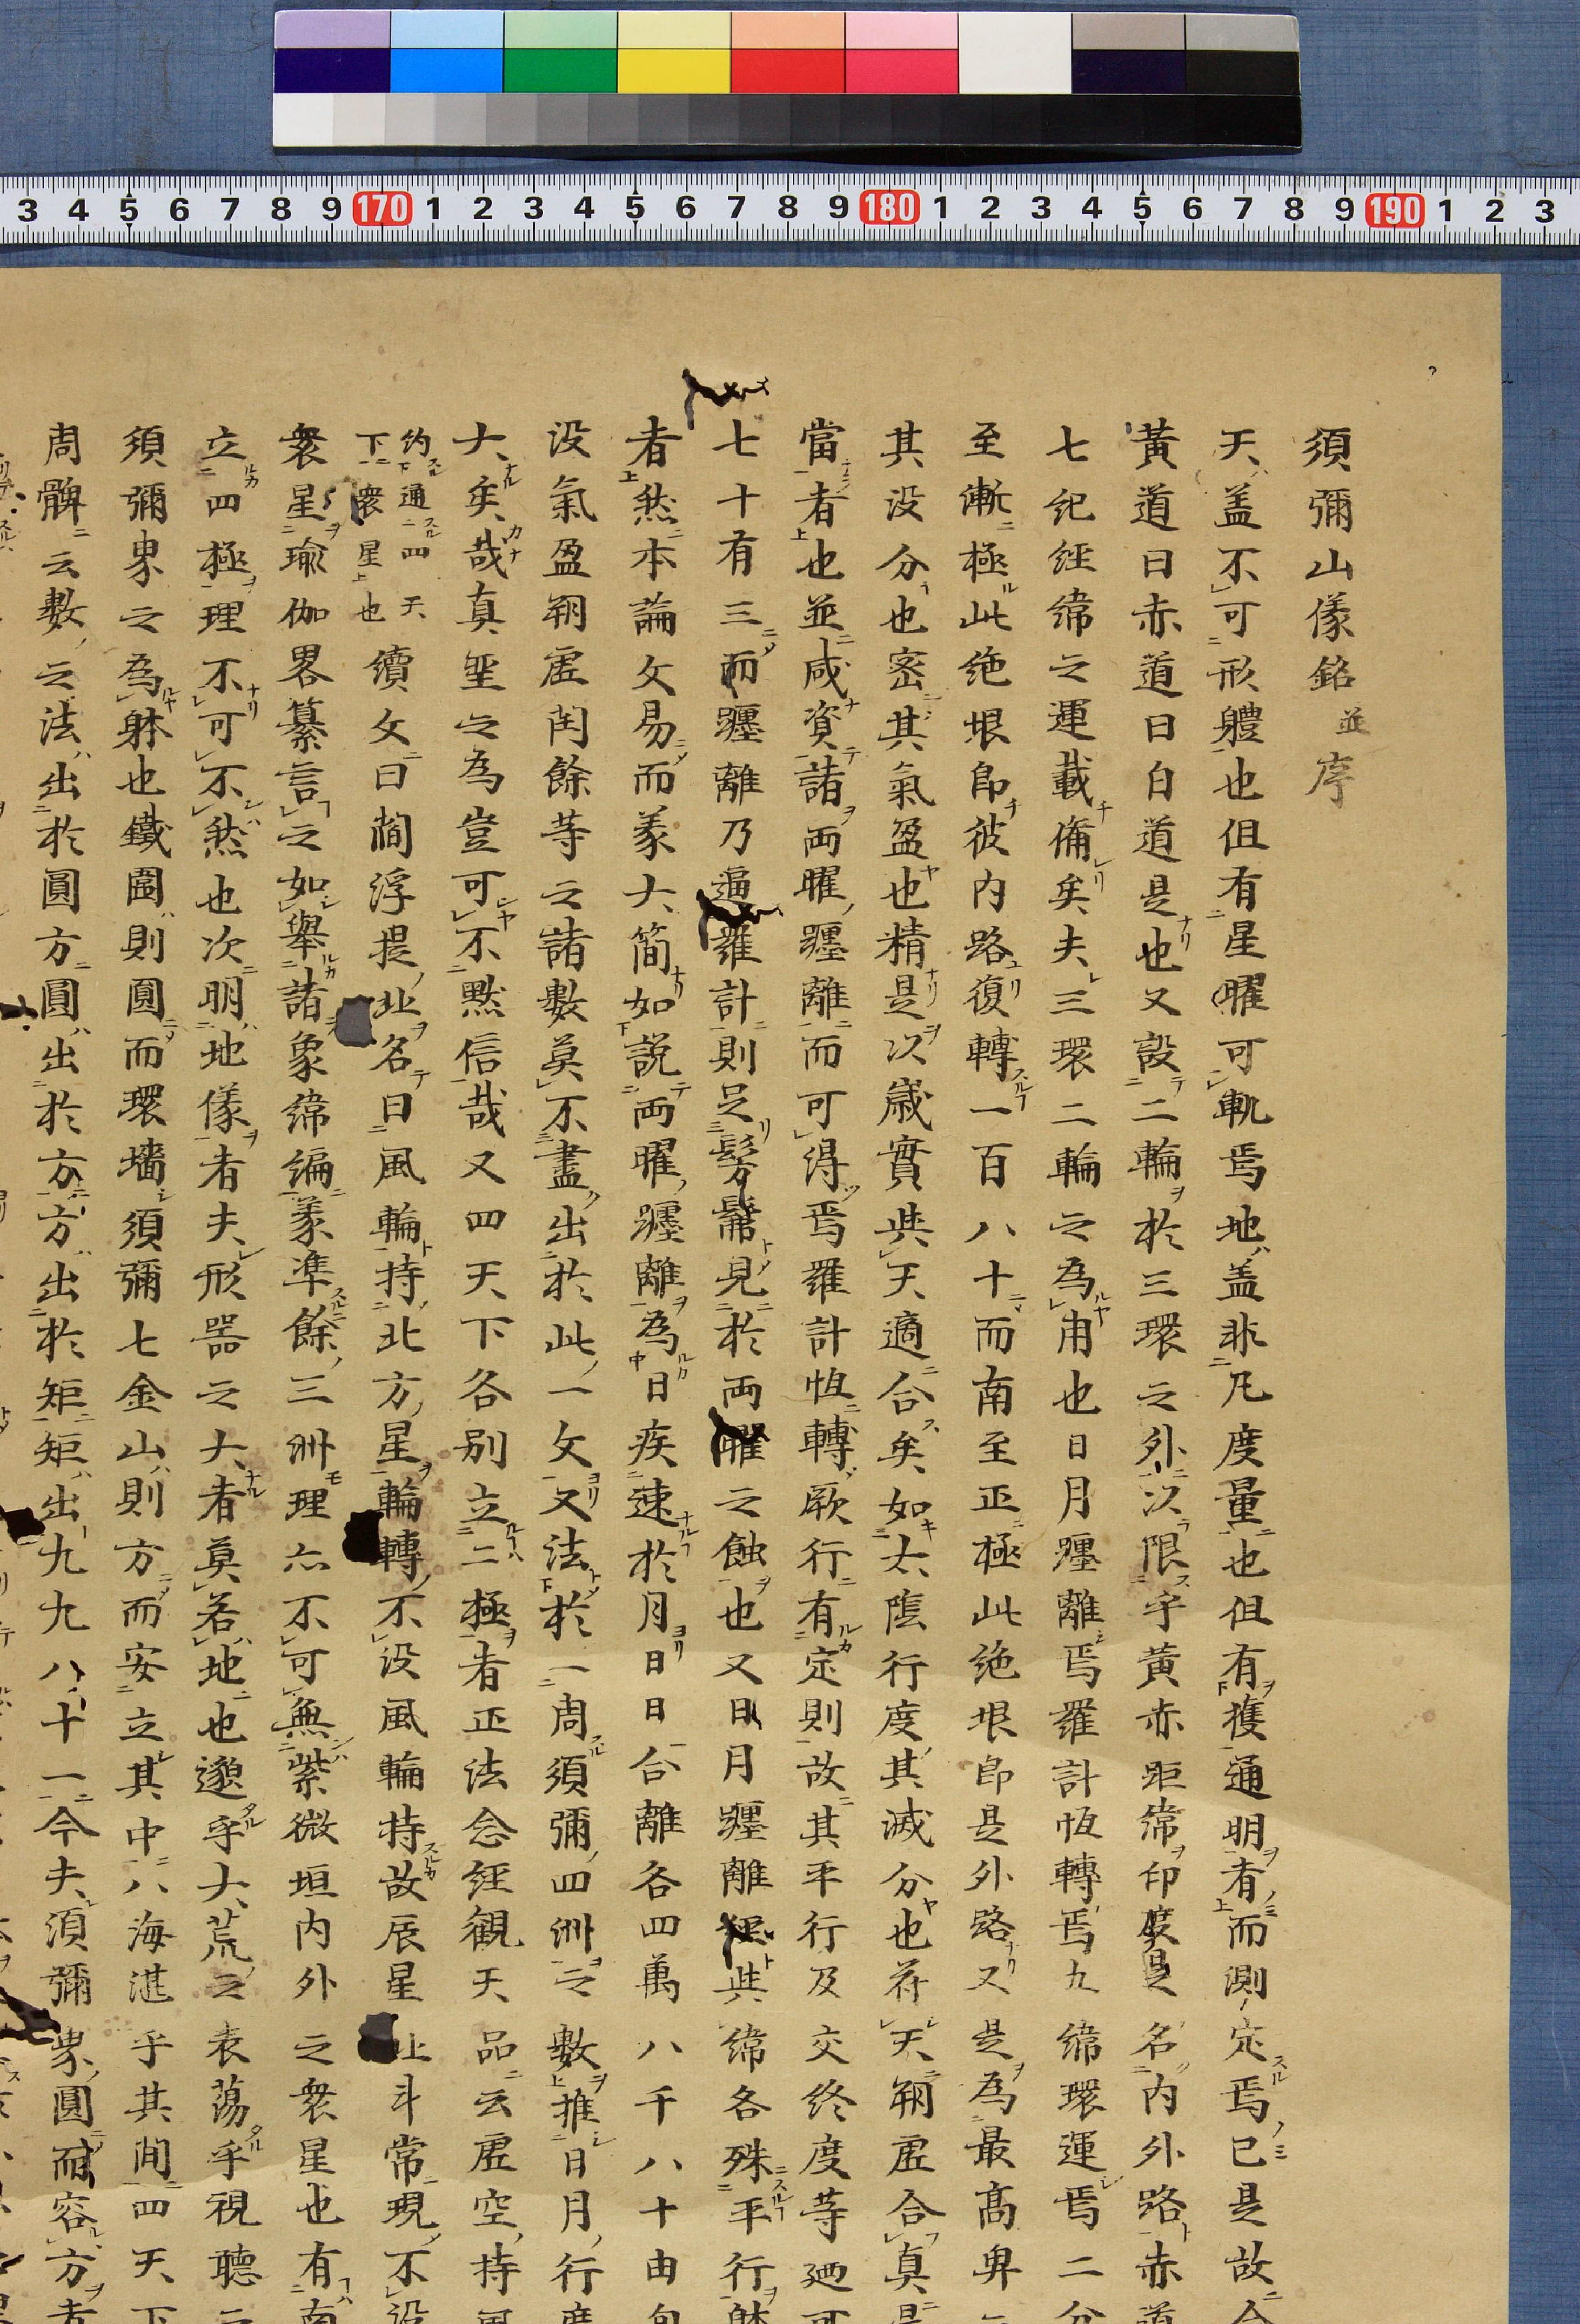 3 4 5 6 7 8 9 170 1 2 3 4 5 6 7 8 9 180 1 2 3 4 5 6 7 8 9 190 1 2 3
須彌山儀銘並序
天盖不可形軆也但有星曜可軌焉地盖非凡度量也但有獲通明者而測定焉已是故今
黃道曰赤道曰白道是也又設二輪於三環之外次限乎黃赤距緯印度是名内外路赤道
七紀経緯之運載俻矣夫三環二輪之為用也日月躔離焉羅計恆轉焉九緯環運焉二分
至漸極此絶垠即彼内路復轉一百八十而南至正極此绝垠即是外路又是為最髙卑
其没分也密其氣盈也精是次歳實与天適合矣如太陰行度其滅分也符天朔虛合真是
當者也並咸資諸两曜躔離而可得焉羅計恆轉厥行有定則故其平行及交終度等廼可
七十有三而躔離乃遍羅計則足髣髴見於两曜之蝕也又日月躔離經与緯各殊平行
者然本論文易而義大簡如説两曜躔離為日疾速於月日日合離各四萬八千八十由旬
没氣盈朔虛閏餘等之諸數莫不盡出於此一文又法於一周須彌四洲之數推日月行度
大矣哉真聖之為豈可不黙信哉又四天下各别立二極者正法念経觀天品云虛空持風
约通四天下衆星也續文曰閻浮提北名曰風輪持北方星輪轉不没風輪持故辰星北斗常現不没
衆星瑜伽畧纂言之如舉諸象緯編義準餘三洲理亦不可無紫微垣内外之衆星也有南
立四極理不可不然也次明地儀者夫形器之大者莫若地也邈乎大荒之表蕩乎視聽之
須彌界之為躰也鐵圍則圓而環墻須彌七金山則方而安立其中八海湛乎其間四天下
周髀云數之法出於圓方圓出於方方出於矩矩出九九八十一今夫湏彌界圓而容方者